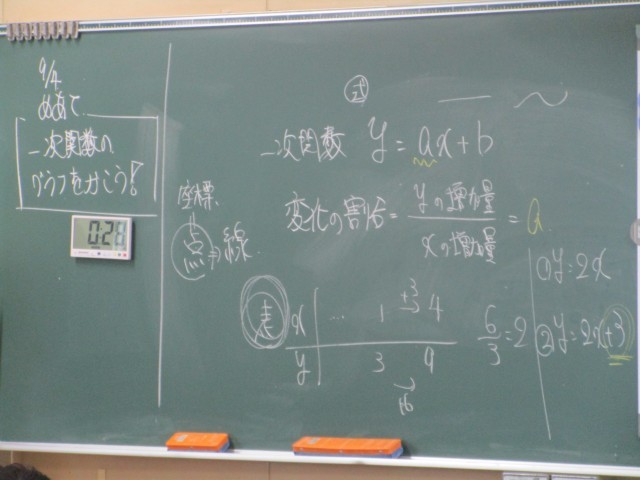 9/4
めあて
一次関数の
グラフをかこう!
0:28
座標
点⇒線
式
一次関数 y=ax+b
変化の割合=yの増加量/xの増加量=a
表
x … 1 +3→ 4
y 3 9
→ +6
6/3=2
①y=2x
②y=2x+3